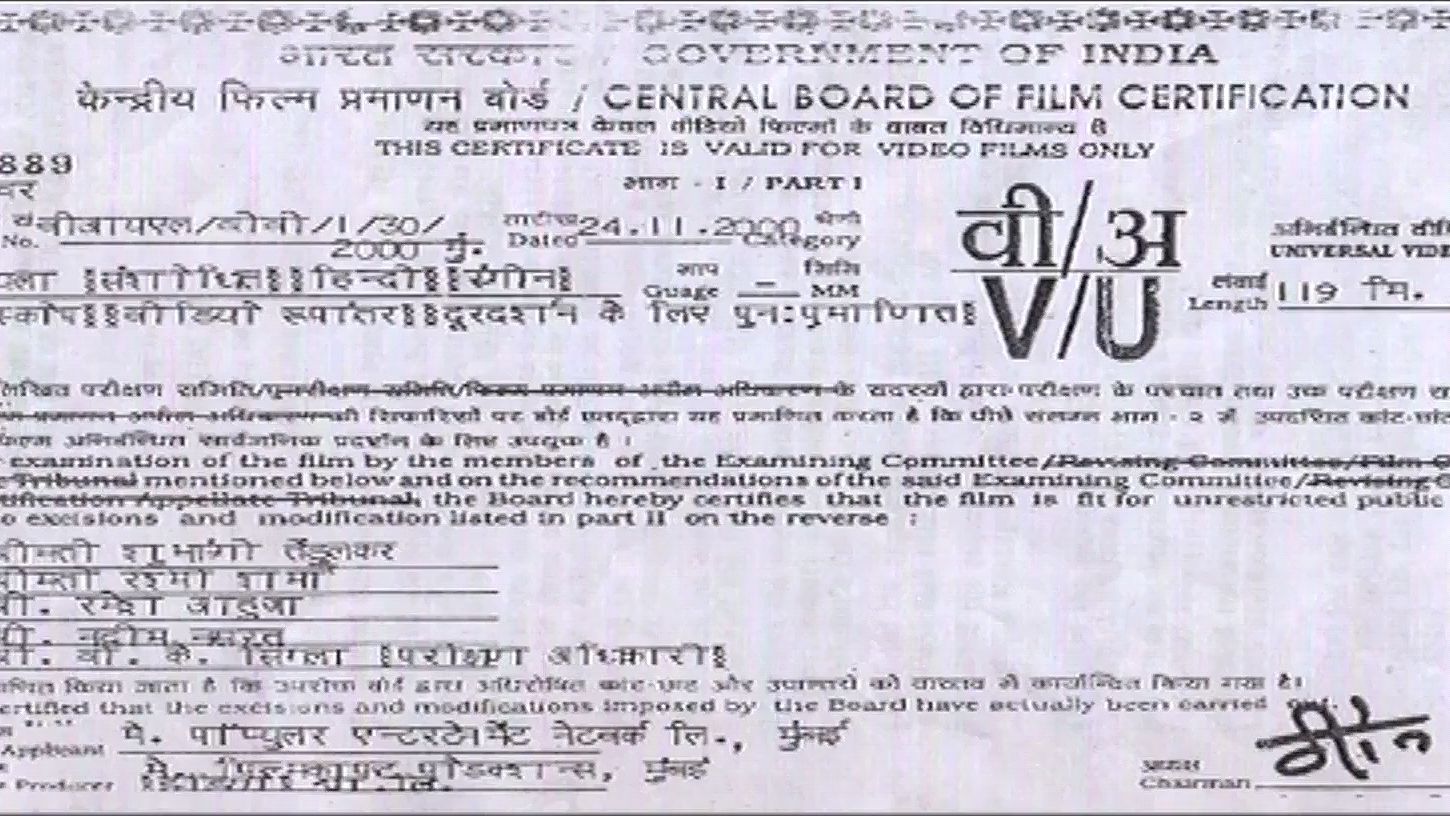 भारत सरकार / GOVERNMENT OF INDIA
केन्द्रीय फिल्म प्रमाणन बोर्ड / CENTRAL BOARD OF FILM CERTIFICATION
यह प्रमाणपत्र केवल वीडियो फिल्मों के बाबत विधिमान्य है
THIS CERTIFICATE IS VALID FOR VIDEO FILMS ONLY
889
भाग - I / PART I
वी/अ
No. वीआयएल/ /1/30/
2000 मुं.
तारीख Dated 24.11.2000
श्रेणी Category
V/U
UNIVERSAL VIDE
संशोधित हिन्दी रंगीन
माप Guage – मिमि MM
लंबाई Length 119 मि.
वीडियो रूपांतर दूरदर्शन के लिए पुन:प्रमाणित
परीक्षण समिति/ के सदस्यों द्वारा परीक्षण के पश्चात तथा उक्त परीक्षण
की सिफारिशों पर बोर्ड एतद्द्वारा यह प्रमाणित करता है कि पीछे संलग्न भाग - २ में
फिल्म अनिर्बन्धित सार्वजनिक प्रदर्शन के लिए उपयुक्त है ।
examination of the film by the members of the Examining Committee/Revising Committee/Film
Tribunal mentioned below and on the recommendations of the said Examining Committee/Revising
tification Appellate Tribunal, the Board hereby certifies that the film is fit for unrestricted public
o excisions and modification listed in part II on the reverse :
शुभांगी तेंडुलकर
रश्मी शर्मा
रमेश आहुजा
नदीम नुसरत
के. सिंगला परीक्षण अधिकारी
किया जाता है कि उपरोक्त बोर्ड द्वारा अधिरोपित कांट-छांट और उपान्तरों को वास्तव में कार्यान्वित किया गया है।
ertified that the excisions and modifications imposed by the Board have actually been carried out.
Applicant मे. पॉप्युलर एन्टरटेनमेंट नेटवर्क लि., मुंबई
Producer मे. प्रोडक्शान्स, मुंबई
प्रा.लि.
अध्यक्ष
Chairman